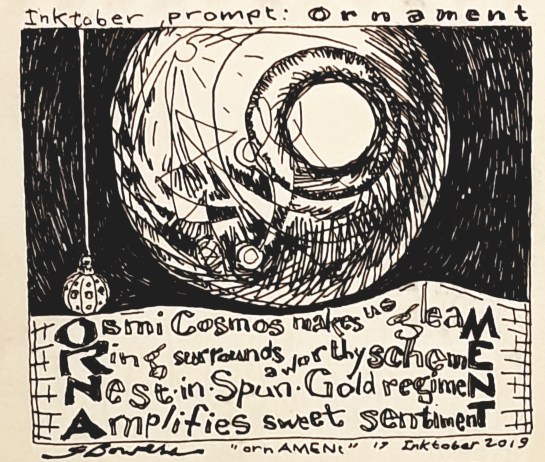 Inktober prompt: Ornament
Osmi Cosmos makes us gleaM
Ring surrounds a worthy schemE
Nest-in-Spun-Gold regimeN
Amplifies sweet sentimenT
SBowers "ornAMENt" 17 Inktober 2019